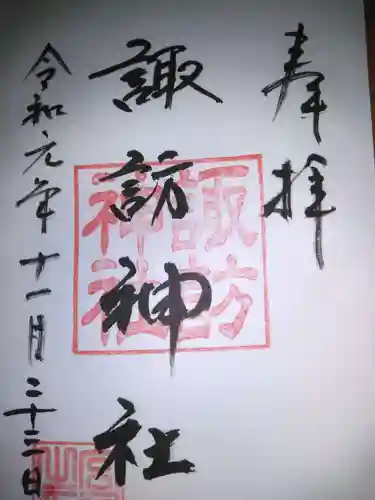 奉拝
諏訪神社
諏訪
神社
令和元年十一月二十三日